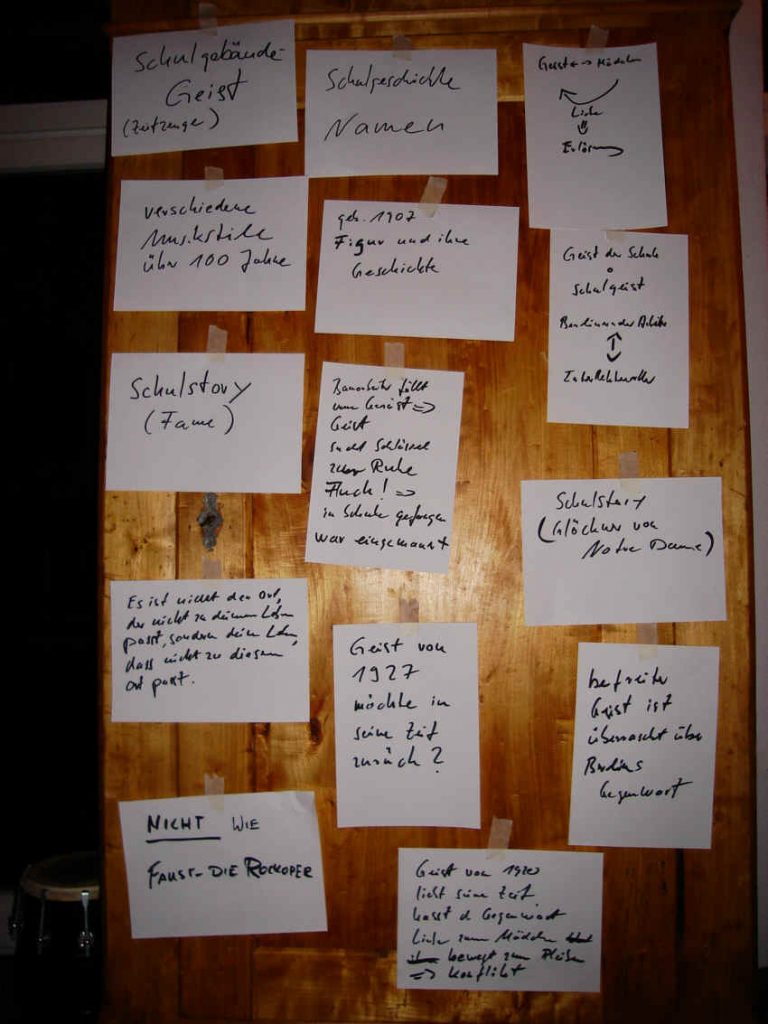 Schulgebäude-
Geist
(Zeitzeuge)
Schulgeschichte
Namen
Geist ↔ Mädchen
Liebe
⇓
Erlösung
verschiedene
Musikstile
über 100 Jahre
geb. 1907
Figur und ihre
Geschichte
Geist der Schule
Schulgeist
↕
Intellektueller
Schulstory
(Fame)
Bauarbeiter fällt
vom Gerüst ⇒
Geist
sucht Schlüssel
zur Ruhe
Fluch! ⇒
in Schule gefangen
war eingemauert
Schulstory
(Glöckner von
Notre Dame)
Es ist nicht der Ort,
der nicht zu deinem Leben
passt, sondern dein Leben,
dass nicht zu diesem
Ort passt.
Geist von
1927
möchte in
seine Zeit
zurück?
befreiter
Geist ist
überrascht über
Berlins
Gegenwart
NICHT WIE
FAUST- DIE ROCKOPER
Geist von 1920
liebt seine Zeit
hasst d Gegenwart
Liebe zum Mädchen
bewegt zum Bleiben
⇒ Konflikt